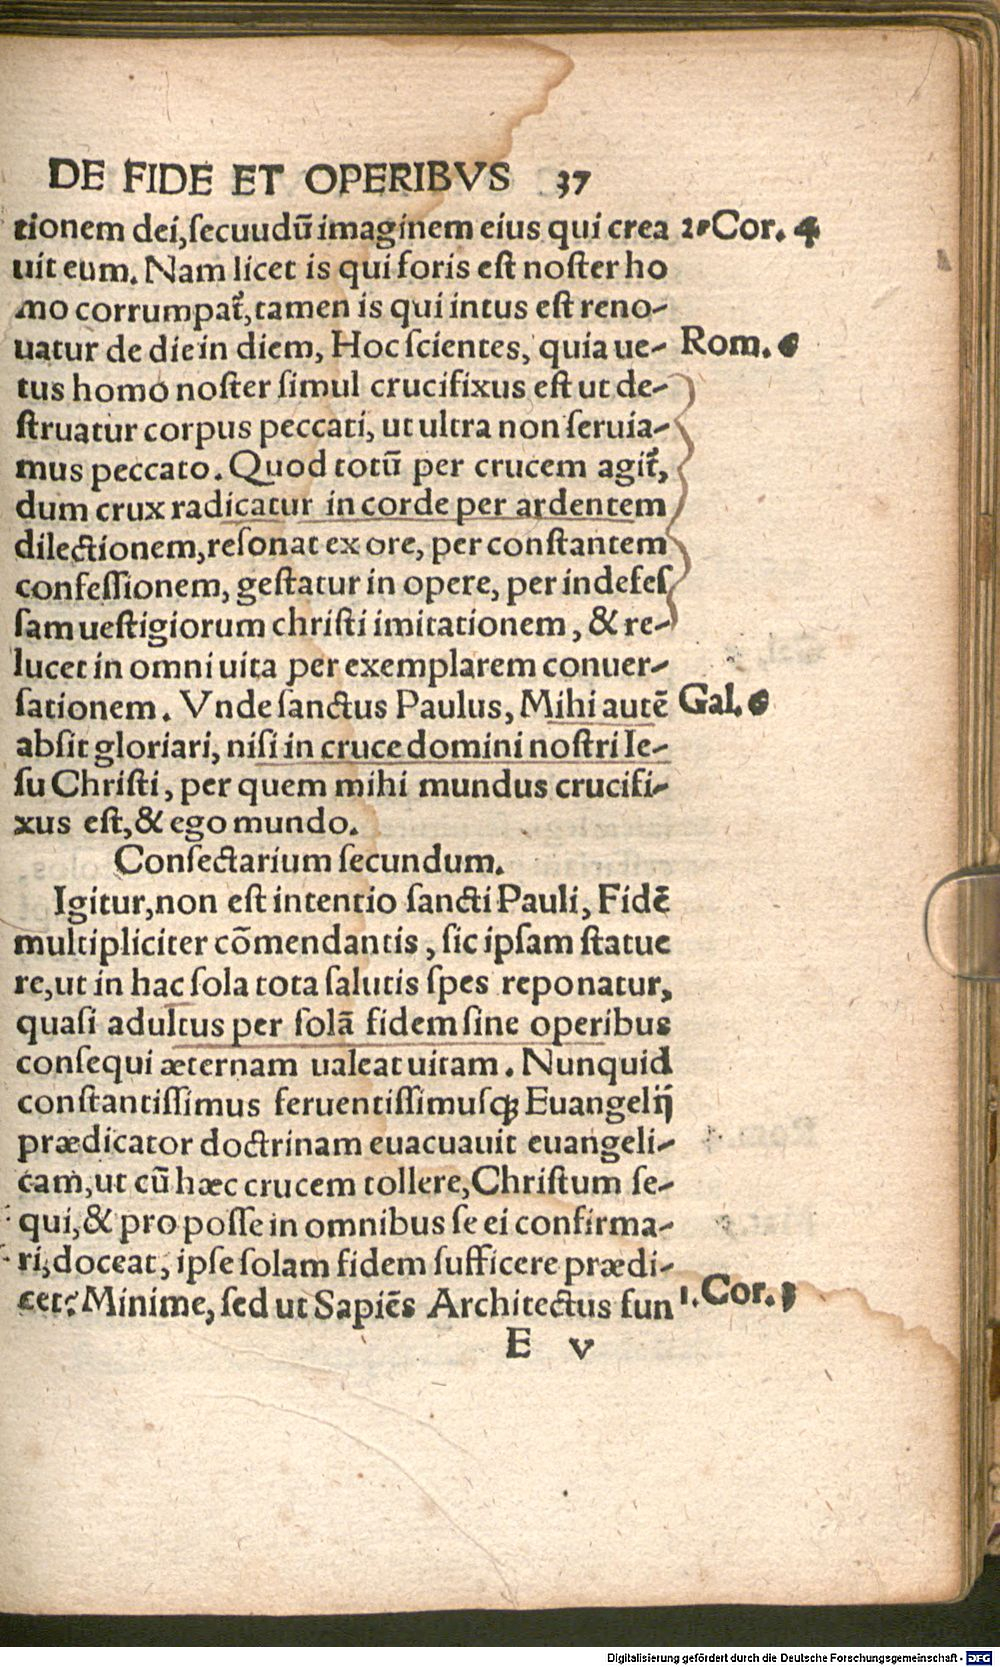 DE FIDE ET OPERIBVS 37
tionem dei,ſecuudū imaginem eius qui crea 2. Cor. 4
uit eum. Nam licet is qui foris eſt noſter ho
mo corrumpat᷑, tamen is qui intus eſt reno-
uatur de die in diem, Hoc ſcientes, quia ue- Rom. 6
tus homo noſter ſimul crucifixus eſt ut de-
ſtruatur corpus peccati, ut ultra non ſeruia-
mus peccato. Quod totū per crucem agit᷑,
dum crux radicatur in corde per ardentem
dilectionem,reſonat ex ore, per conſtantem
confeſſionem, geſtatur in opere, per indefeſ
ſam ueſtigiorum chriſti imitationem, & re-
lucet in omni uita per exemplarem conuer-
ſationem. Vnde ſanctus Paulus, Mihi autē Gal. 6
abſit gloriari, niſi in cruce domini noſtri Ie-
ſu Chriſti, per quem mihi mundus crucifi-
xus eſt, & ego mundo.
Conſectarium ſecundum.
Igitur,non eſt intentio ſancti Pauli, Fidē
multipliciter cōmendantis, ſic ipſam ſtatue
re,ut in hac ſola tota ſalutis ſpes reponatur,
quaſi adultus per ſolā fidem ſine operibus
conſequi æternam ualeat uitam. Nunquid
conſtantiſſimus feruentiſſimuſq; Euangelij
prædicator doctrinam euacuauit euangeli-
cam,ut cū hæc crucem tollere,Chriſtum ſe-
qui,& pro poſſe in omnibus ſe ei confirma-
ri,doceat, ipſe ſolam fidem ſufficere prædi-
cet? Minime, ſed ut Sapiēs Architectus fun 1. Cor. 3
E v
Digitalisierung gefördert durch die Deutsche Forschungsgemeinschaft - DFG